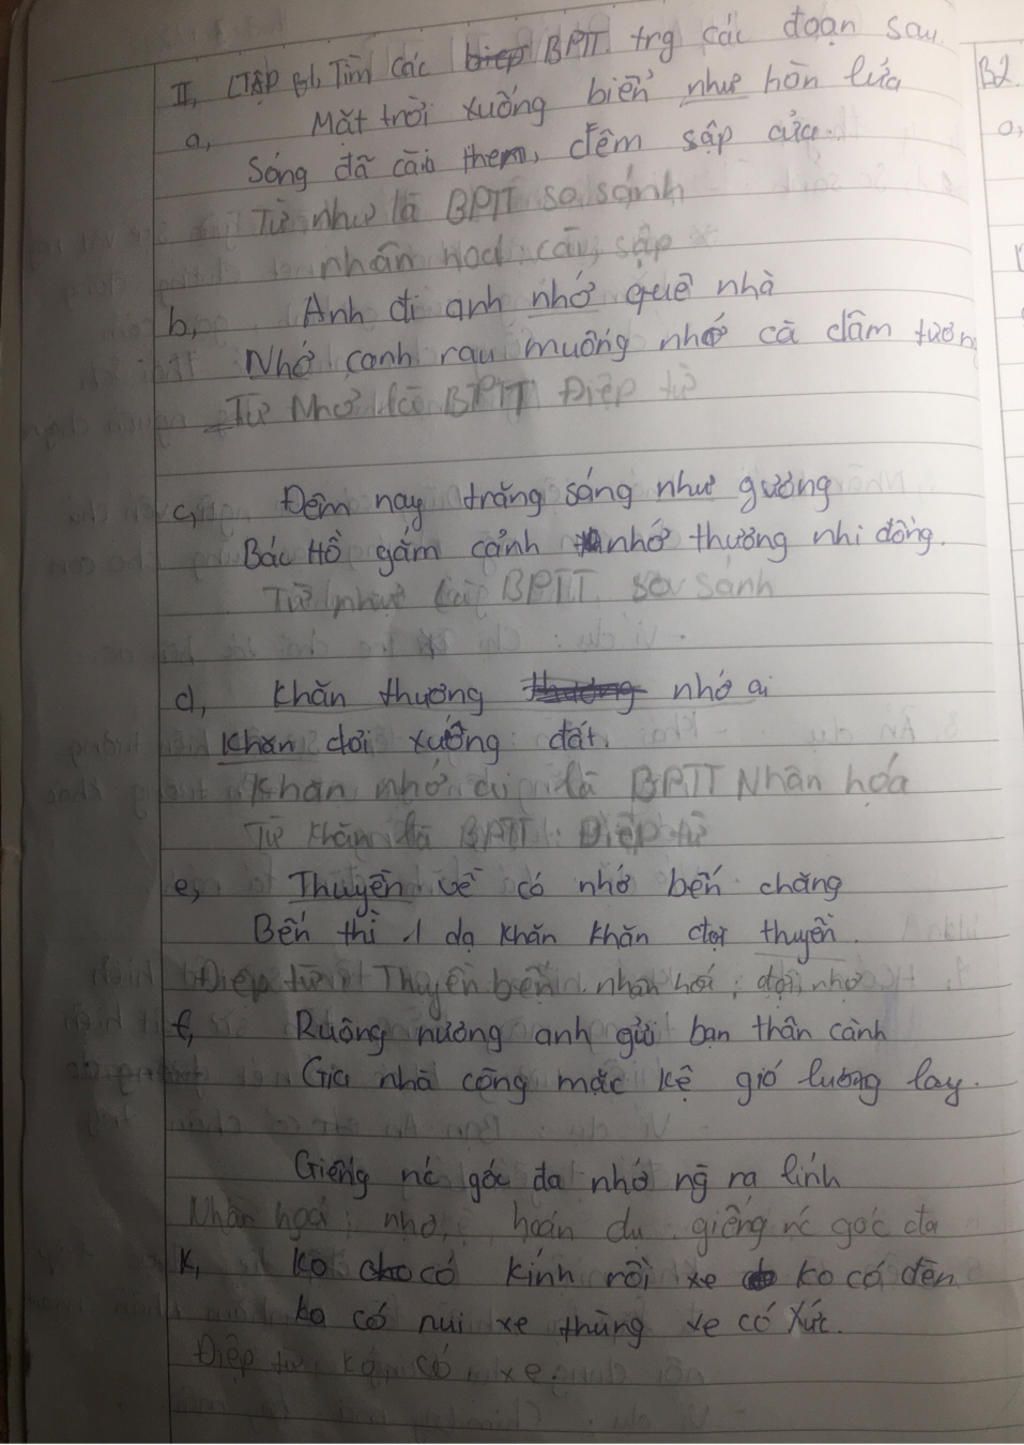 II, LTẬP B1, Tìm các biẹp BPTT trg các đoạn sau.
a, Mặt trời xuống biển như hòn lửa
Sóng đã cài them, đêm sập cửa.
Từ như là BPTT so sánh
nhân hoá: cài, sập
b, Anh đi anh nhớ quê nhà
Nhớ canh rau muống nhớ cà dầm tương
Từ Nhớ là BPTT Điệp từ
c, Đêm nay trăng sáng như gương
Bác Hồ gắm cảnh nhớ thương nhi đồng.
Từ như là BPTT so sánh
d, Khăn thương thương nhớ ai
Khăn dơi xuống đất.
Khăn nhớ ai là BPTT Nhân hóa
Từ khăn là BPTT: Điệp từ
e, Thuyền về có nhớ bến chăng
Bến thì 1 dạ khăn khăn đợi thuyền.
Điệp từ: Thuyền bến. nhân hoá: đợi, nhớ
f, Ruộng nương anh gửi bạn thân cành
Gia nhà công mặc kệ gió lương lay.
Giếng nc gốc đa nhớ ng ra lính
Nhân hoá: nhớ, hoán dụ: giếng nc gốc đa
k, Ko cho có kính rồi xe ko có đèn
ko có nui xe thùng xe có xức.
Điệp từ: ko, có, xe.
B2.
a,